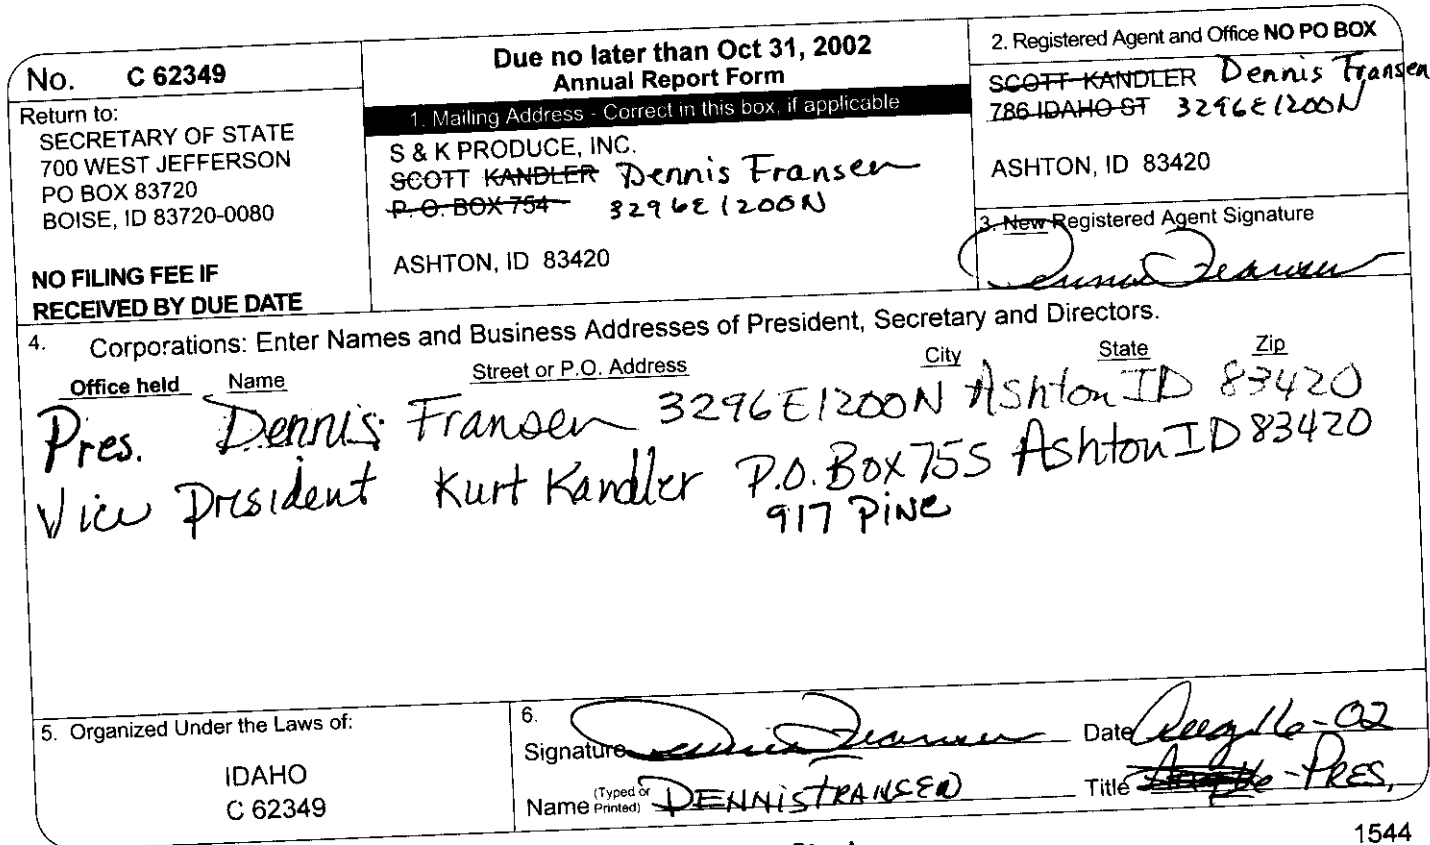 No. C 62349
Return to:
SECRETARY OF STATE
700 WEST JEFFERSON
PO BOX 83720
BOISE, ID 83720-0080
NO FILING FEE IF
RECEIVED BY DUE DATE
Due no later than Oct 31, 2002
Annual Report Form
1. Mailing Address - Correct in this box, if applicable
S & K PRODUCE, INC.
SCOTT KANDLER Dennis Fransen
P. O. BOX 754 3296E1200N
ASHTON, ID 83420
2. Registered Agent and Office NO PO BOX
SCOTT KANDLER Dennis Fransen
786 IDAHO ST 3296E1200N
ASHTON, ID 83420
3. New Registered Agent Signature
Dennis Fransen
4. Corporations: Enter Names and Business Addresses of President, Secretary and Directors.
Office held Name Street or P.O. Address City State Zip
Pres. Dennis Fransen 3296E1200N Ashton ID 83420
Vice President Kurt Kandler P.O. Box 755 Ashton ID 83420
917 Pine
5. Organized Under the Laws of:
IDAHO
C 62349
6.
Signature Dennis Fransen Date Aug 16-02
Name (Typed or Printed) DENNIS FRANSEN Title PRES.
1544